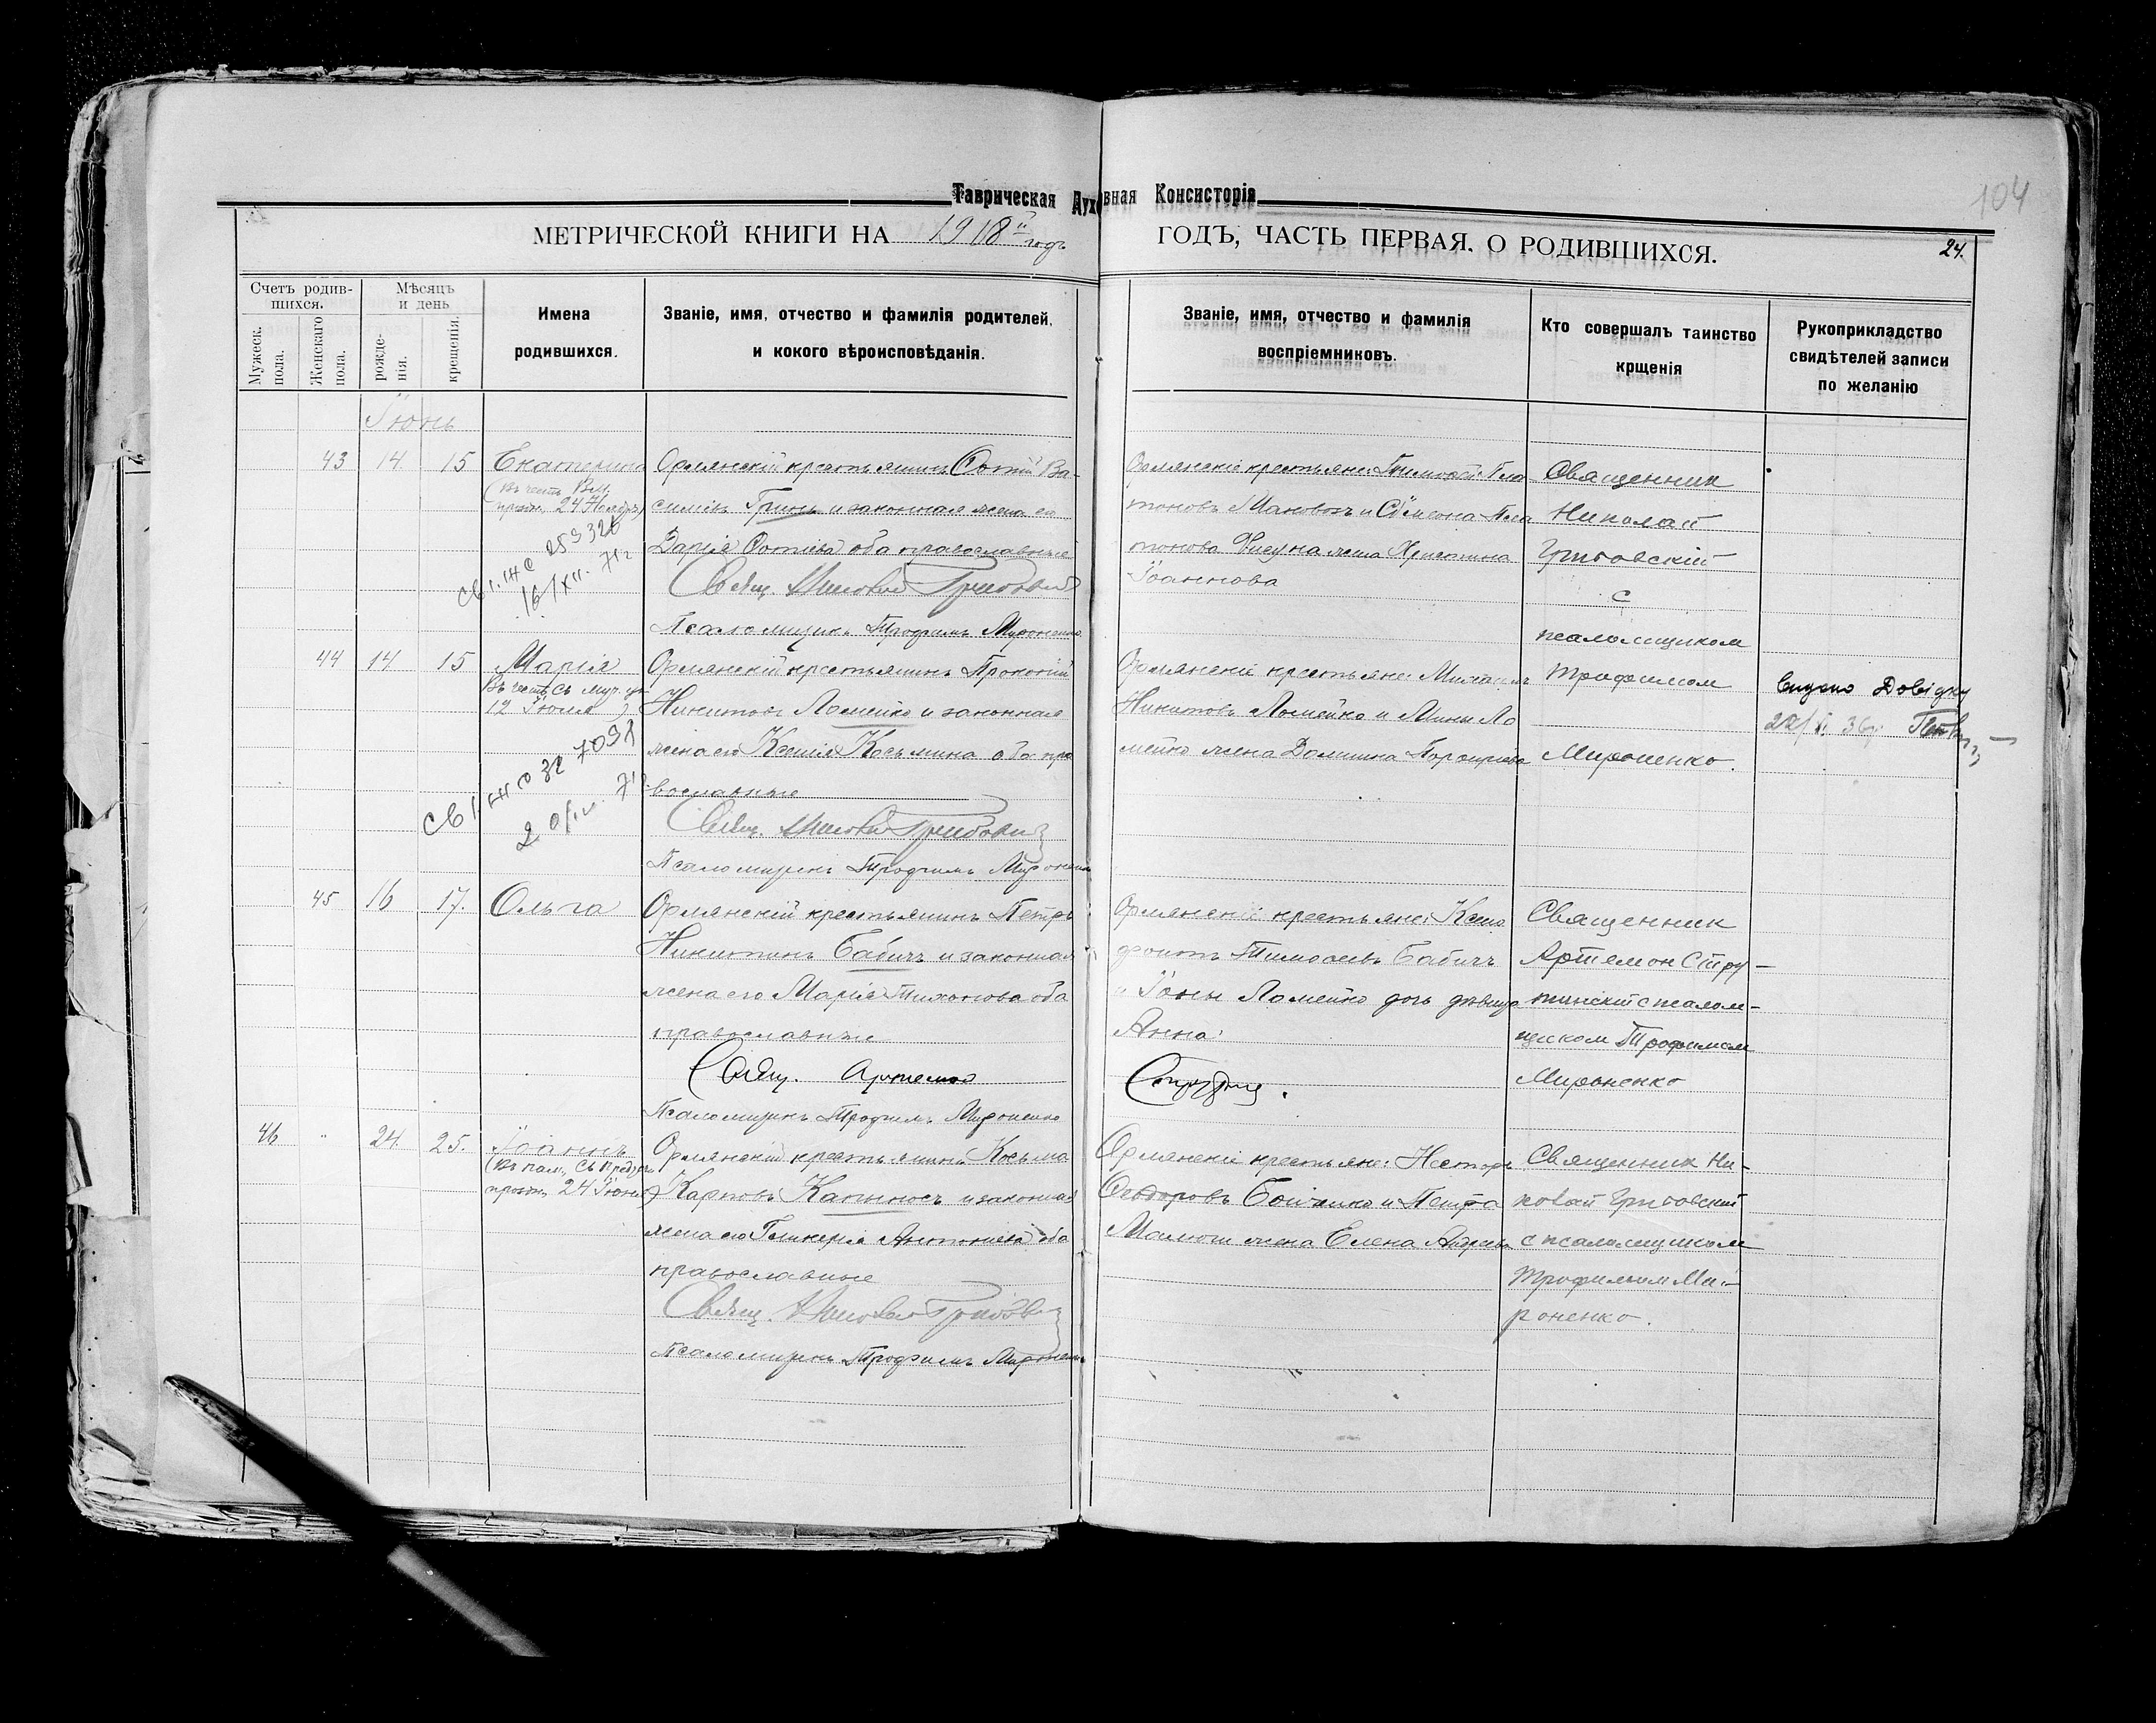 Таврическая Духовная Консисторія
104
МЕТРИЧЕСКОЙ КНИГИ НА 1918й годъ ГОДЪ, ЧАСТЬ ПЕРВАЯ, О РОДИВШИХСЯ.
24.
Счетъ родив-
шихся.
Мужеск. пола.
Женскаго пола.
Мѣсяцъ
и день
рожде-
нія.
крещенія.
Имена
родившихся.
Званіе, имя, отчество и фамилія родителей,
и кокого вѣроисповѣданія.
Званіе, имя, отчество и фамилія
воспріемниковъ.
Кто совершалъ таинство
крщенія
Рукоприкладство
свидѣтелей записи
по желанію
Іюнь
43 14 15 Екатерина
24 Ноября)
16/XII. 71г
Орлянскій крестьянинъ Фотій Ва-
силіевъ Гринь и законная жена его
Дарія Фотіева оба православные
Свящ. Николай
Псаломщикъ Трофимъ Мироненко
Орлянскіе крестьяне: Тимофей Пла
тоновъ и Сѵмеона Пла
тонова жена Христина
Іоаннова
Священник
Николай
с
псаломщиком
Трофимом
Мироненко.
44 14 15 Марія
12 Іюля)
Орлянскій крестьянинъ Прокопій
Никитовъ Ломейко и законная
жена его Ксенія Косьмина оба пра
вославные
Свящ. Николай
Псаломщикъ Трофимъ Мироненко
Орлянскіе крестьяне:
Никитовъ Ломейко и Ло
мейко жена Домника
Видано Довідку
45 16 17. Ольга
Орлянскій крестьянинъ Петръ
Никитинъ Бабичъ и законная
жена его Марія Тихонова оба
православные
Свящ. Артемон
Псаломщикъ Трофимъ Мироненко
Орлянскіе крестьяне: Ксено
фонтъ Тимофеевъ Бабичъ
и Іоны Ломейко дочь дѣвица
Анна
Священник
Артемон Стру-
с псалом-
щиком Трофимом
Мироненко
46 " 24. 25. Іоаннъ
24 Іюня)
Орлянскій крестьянинъ Косьма
Карповъ Капыносъ и законная
жена его Гликерія Антоніева оба
православные
Свящ. Николай
Псаломщикъ Трофимъ Мироненко
Орлянскіе крестьяне: Несторъ
Ѳеодоровъ Бойчико и Петра
жена Елена
Священник Ни-
колай
с псаломщиком
Трофимом Ми-
роненко.